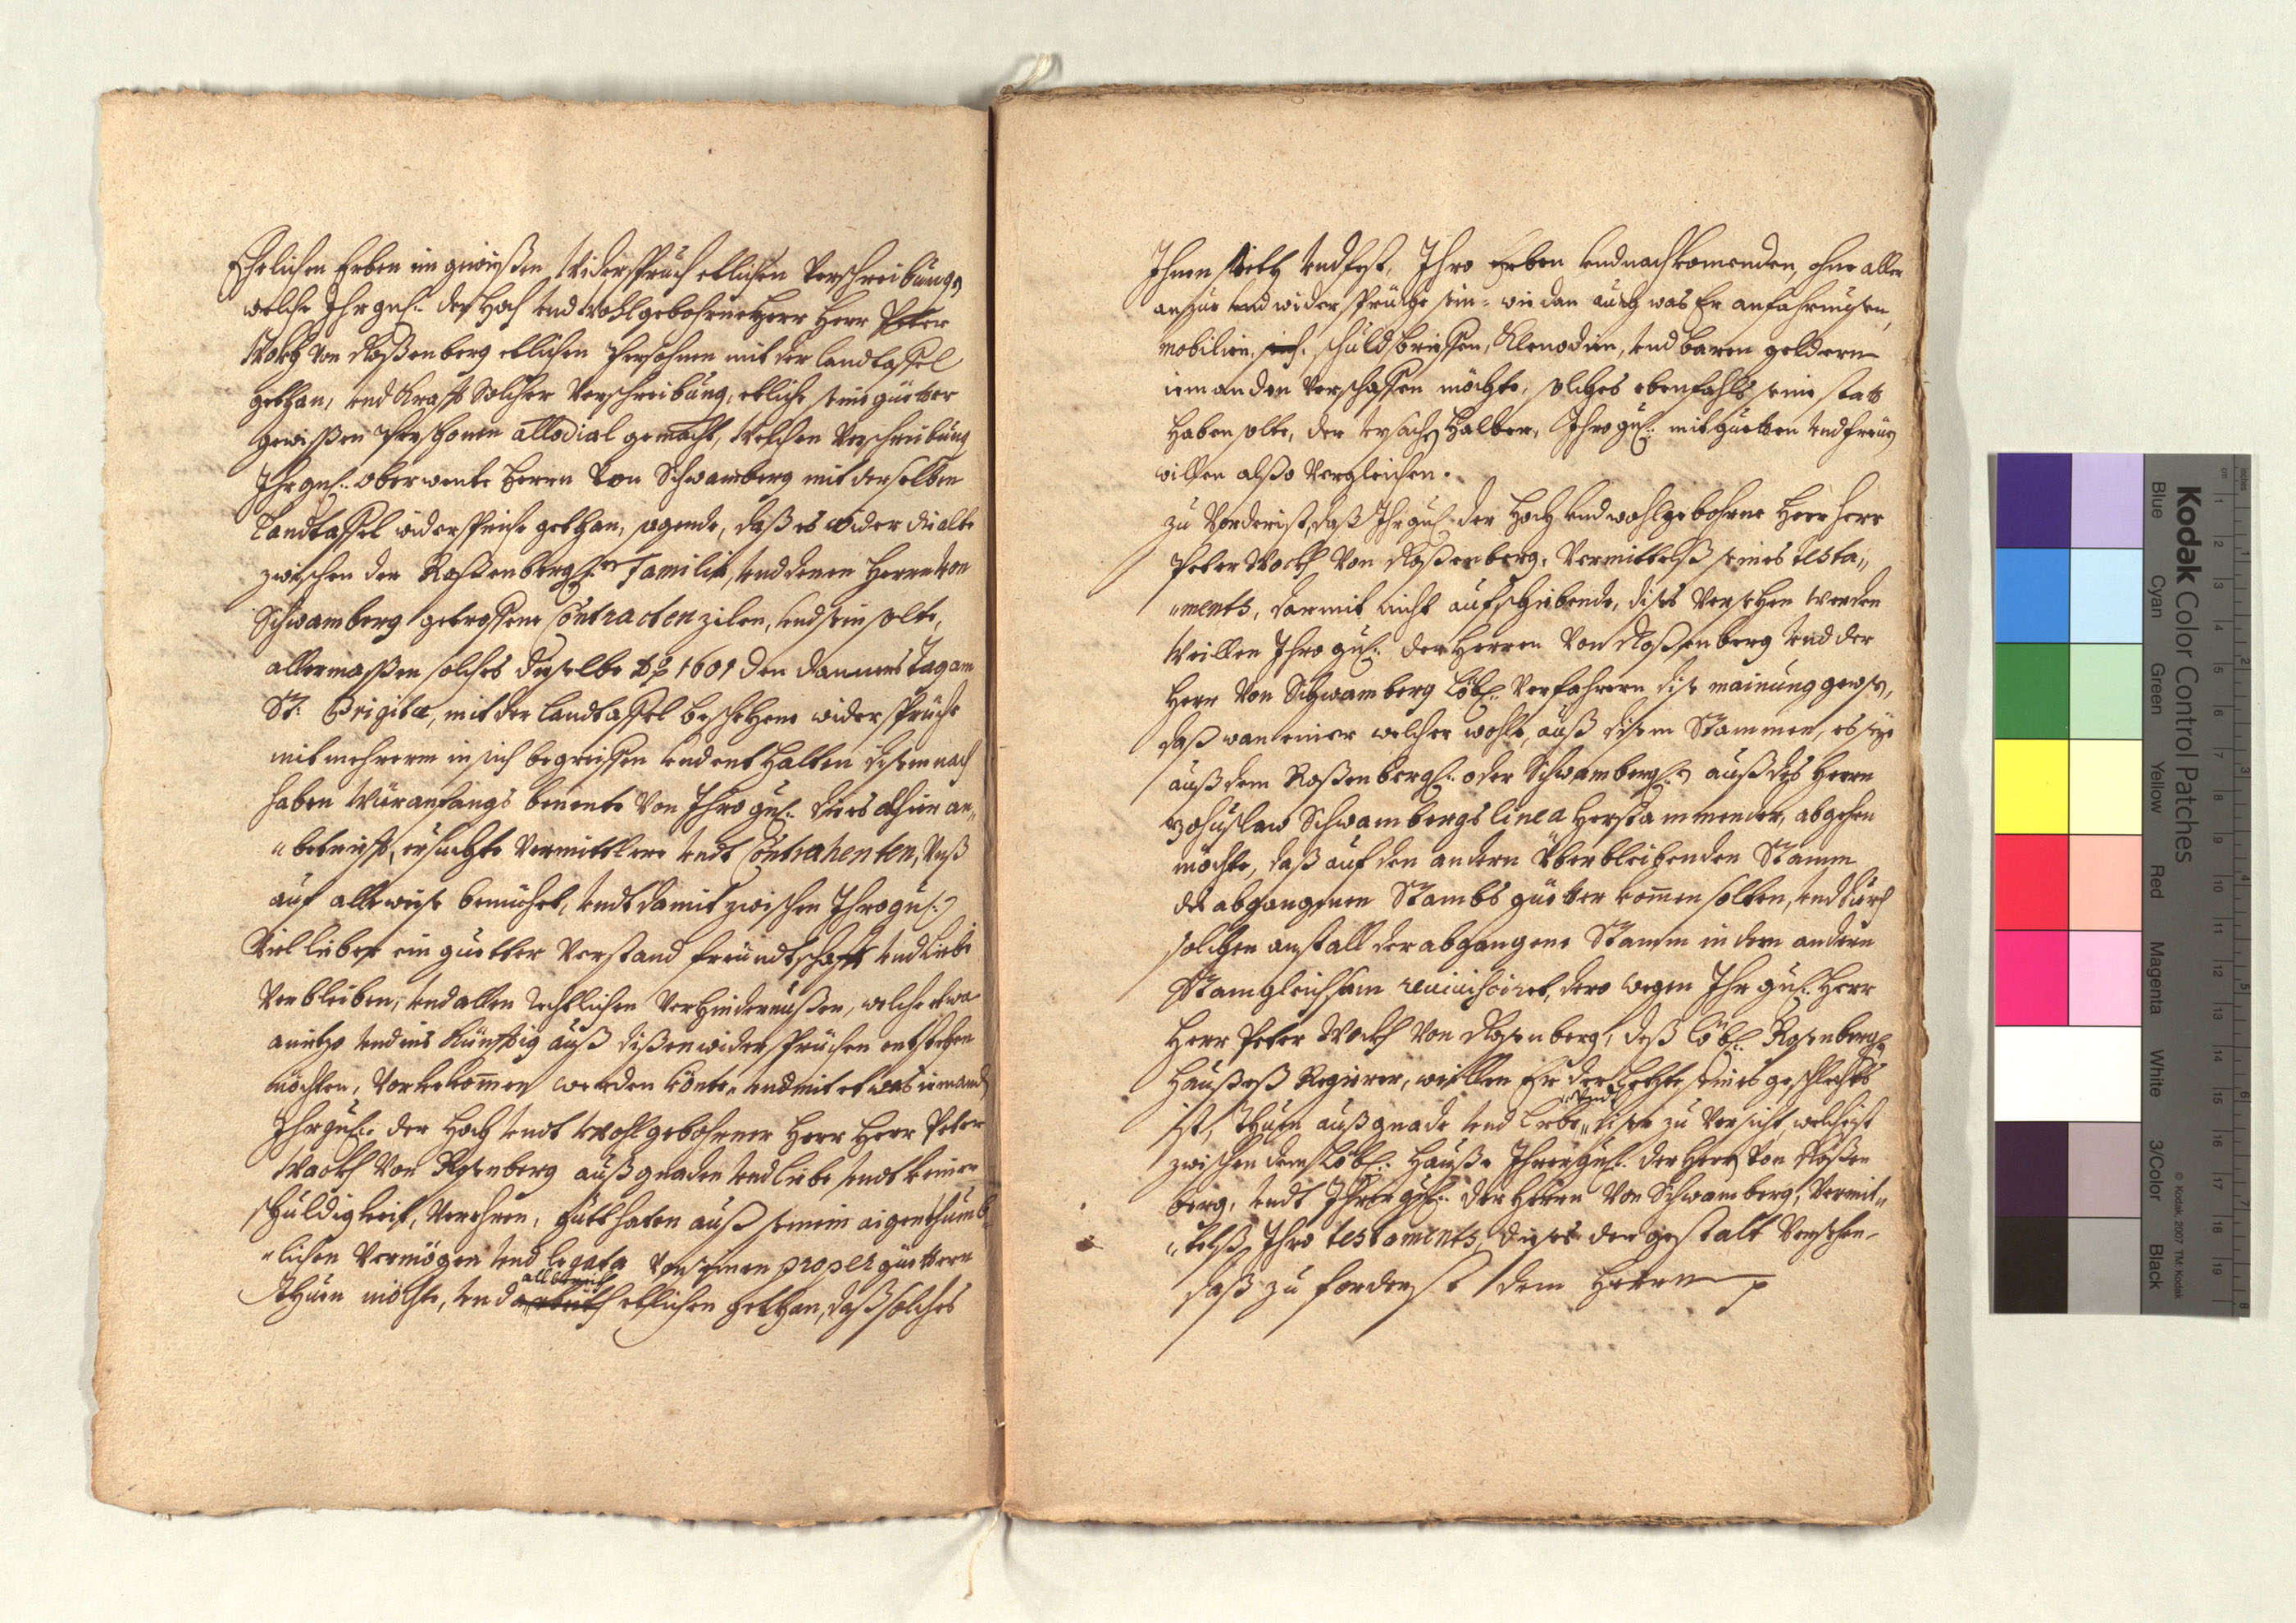 Ehelichen Erben im gewissen Widerspruch etlichen Verschreibungen
welche Ihr gnh: der Hoch und Wohlgebohrne Herr Herr Peter
Wokh von Roßenberg etlichen Persohnen mit der landtaffel
gethan, und Krafft Solcher Verschreibung, etliche seine güetter
gewißen Persohnen allodial gemacht, Welchen Verschreibung
Ihr gnh: oberwente Herrn von Schwamberg mit derselben
Landtaffel widerspriche gethan, sagende, daß es wider die alte
zwischen der Roßenbergh: Familia, und denen Herrn von
Schwamberg getroffene Contracten zilen, und sein solte,
allermaßen solches dieselbe A: 1601 den Tag am
St: Brigitæ, mit der landtaffel beschehene widersprüche
mit mehrerm in sich begreiffen und enthalten disem nach
haben Wür anfangs benente von Ihro gnh: an„
„ersuchte Vermittlere undt Contrahenten, Unß
auf alle weise bemühet, undt damit zwischen Ihro gnh:
Viel lieber ein guetter Verstand freündtschafft und Liebe
Verbleiben, und allen rechtlichen Verhindernußen, welche etwa
anietzo und ins Künfftig auß dißen widersprüchen entstehen
möchten, vorkekommen werden könte, und mit etwas iemand
Ihr gnh: der Hoch undt Wohlgebohrner Herr Herr Peter
Wockh Von Rosenberg auß gnaden und liebe undt keiner
schuldigkeit, Verehren, guttthaten auß seinem aigenthumb„
„lichen Vermögen und legata von seinen proper güettern
Thuen möchte, und allbereith etlichen gethan, daß solches
Ihnen stett und fest, Ihro Erben und nachkomenden, ohne allen
anspr und widersprüche sein: wie dan auch was Er an fahrnußen,
mobilien, schuldbrieffen, Klenodien, und baren geldern
iemanden verschaffen möchte, solches ebenfahls seine statt
haben solte, der ursach halber, Ihro gnh: mit guetten und freyen
willen alßo vergleichen.
zu Vorderist, daß Ihr gnh: der Hoch und wohlgebohrne Herr Herr
Peter Wockh Von Roßenberg, Vermittelß seines testa„
„ments, darmit nicht aufschiebende, dises versehen werden
Weillen Ihro gnh: der Herren Von Roßenberg und der
Herrn Von Schwamberg löbl: Vorfahrern dise mainung gewesen,
daß wan einer welcher wohle, auß disem Stammen, es seye
auß dem Roßenbergh: oder Schwambergh: auß des Herrn
Bohuslaw Schwambergs linea herstammender, abgehen
möchte, daß auf den andern Überbleibenden Stamm
des abgangenen Stambs güetter komen solten, und durch
solchen anfall der abgangene Stamm in dem andern
Stam gleichsam reuiuisciret, dero wegen Ihr gnh: Herr
Herr Peter Wockh Von Rosenberg, deß löbl: Rosenbergh:
Haußeß Regierer, weillen Er der Letzte seines geschlechts
ist, Thuen auß gnade und liebe„ disen zu Versicht, welche ist
zwischen dem Löbl: Hauße Ihrer gnh: der Herrn von Roßen
berg, undt Ihrer gnh: der Herrn Von Schwamberg, Vermit„
„telß Ihro testaments, dises der gestalt versehen,
daß zu forderst dem Herrn